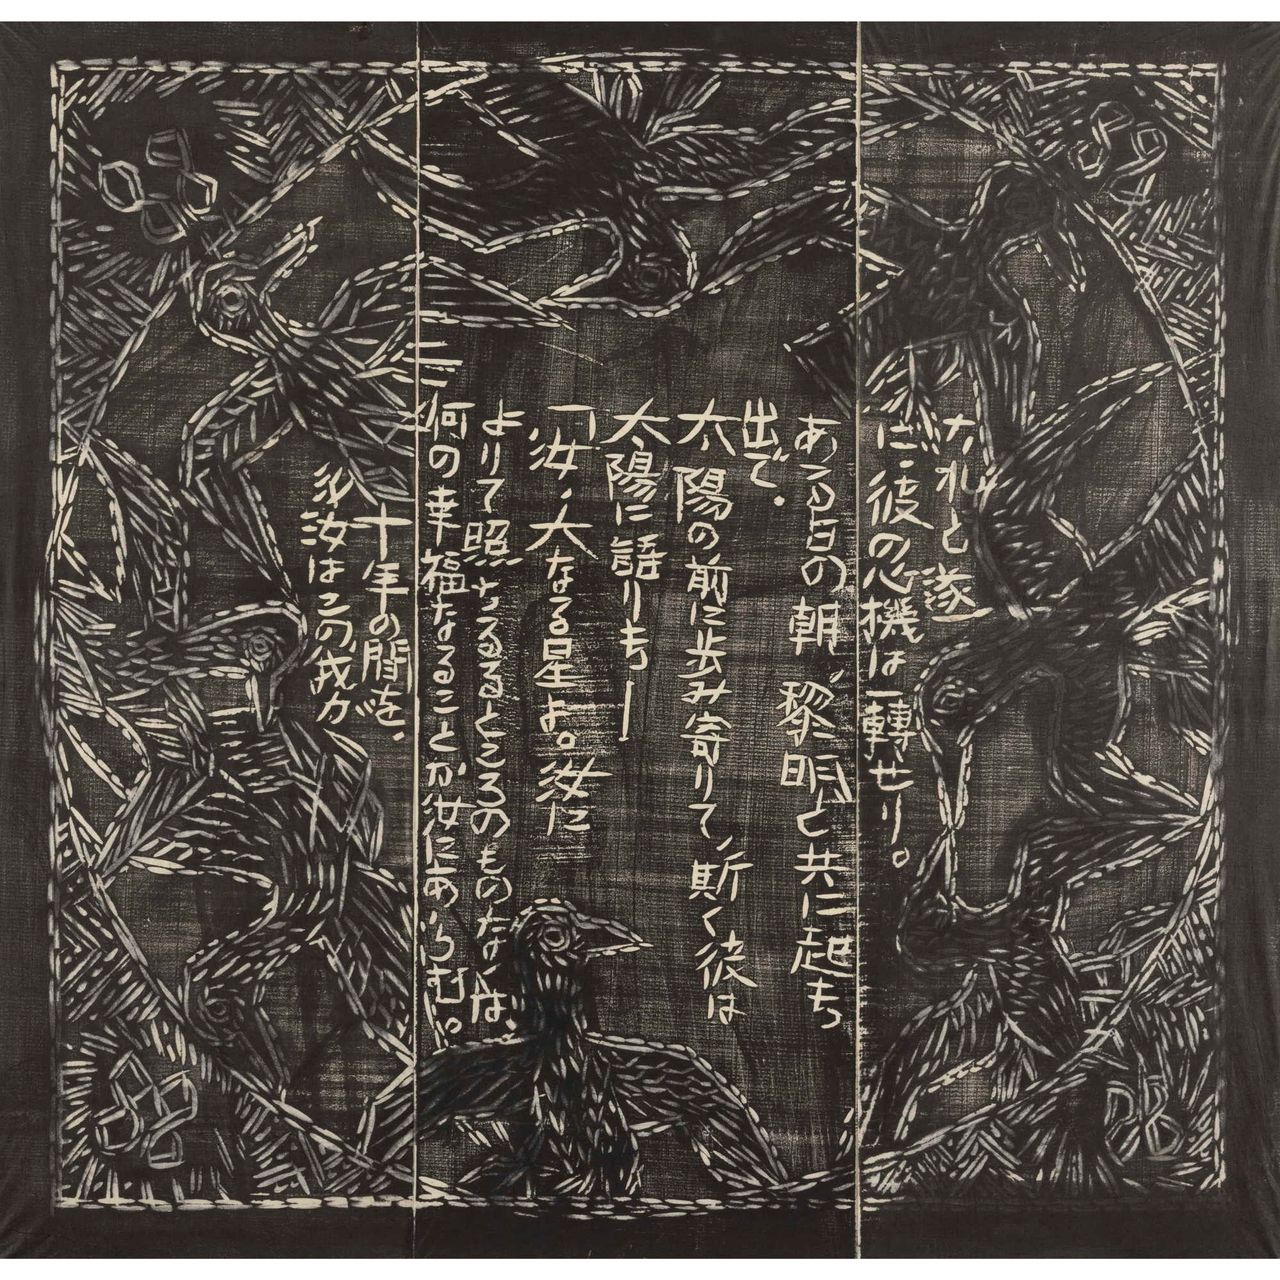 されと遂
に、彼の心機は一轉せり。
ある日の朝、黎明と共に起ち
出で、
太陽の前に歩み寄りて、斯く彼は
太陽に語りき—
「汝、大なる星よ。汝に
よりて照さるるところのものなくば、
何の幸福なることか汝にあらむ。
十年の間を、
汝はこの我が